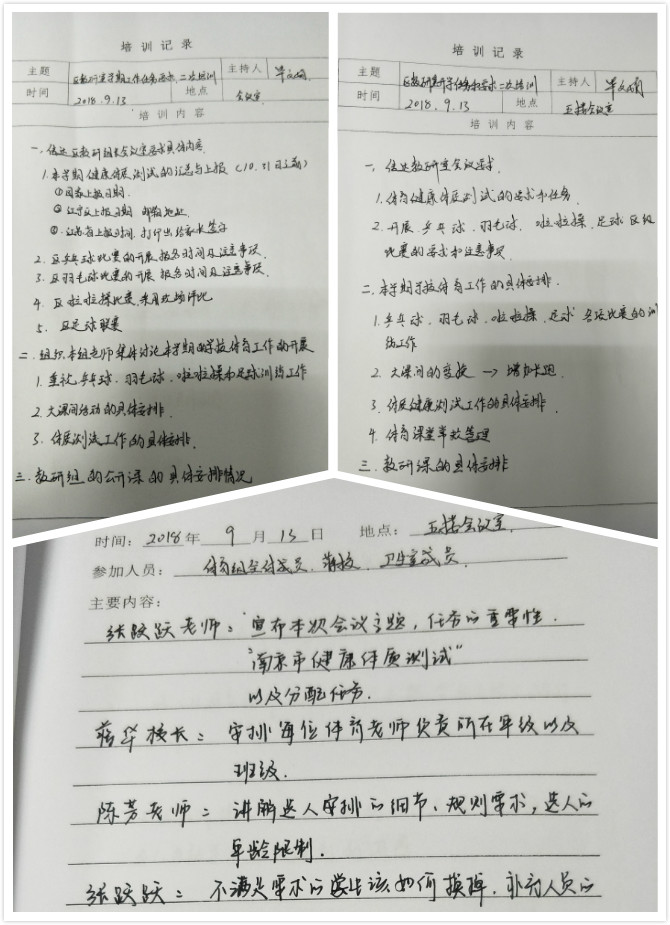 培训记录
主题 区教研室学期工作任务要求、二次培训 主持人
时间 2018.9.13 地点 会议室
培训内容
一、传达区教研组长会议室要求具体内容
1.本学期健康体质测试的汇总与上报（10.31日之前）
①国家上报日期.
②江宁区上报日期 邮箱地址.
③江苏省上报时间.打印出给校长签字
2. 区乒乓球比赛的开展.报名时间及注意事项.
3. 区羽毛球比赛的开展 报名时间及注意事项.
4. 区啦啦操比赛,采用现场评比
5. 区足球联赛
二.组织本组老师集体讨论本学期的学校体育工作的开展
1. 重视乒乓球.羽毛球.啦啦操和足球训练工作
2. 大课间活动的具体安排.
3. 体质测试工作的具体安排.
三.教研组的公开课的具体安排情况
培训记录
主题 区教研室开学任务和要求二次培训 主持人
时间 2018.9.13 地点 五楼会议室
培训内容
一、传达教研室会议要求
1.体育健康体质测试的要求和任务.
2.开展乒乓球.羽毛球.啦啦操.足球区级
比赛的要求和注意事项.
二.本学期学校体育工作的具体安排.
1.乒乓球.羽毛球.啦啦操.足球各项比赛的训
练工作
2. 大课间的变换 → 增加跑.
3. 体质健康测试工作的具体安排.
4. 体育课堂事故管理
三.教研课的具体安排
时间：2018年 9 月 13 日 地点：五楼会议室.
参加人员：体育组全体成员、蒋校、卫生室成员.
主要内容：
张跃跃老师：宣布本次会议主题，任务的重要性.
“南京市健康体质测试”
以及分配任务.
蒋华校长：安排每位体育老师负责所在年级以及
班级.
陈芳老师：讲解选人安排的细节、规则要求，选人的
年龄限制.
张跃跃：不满足要求的学生该如何换掉，补充人员的